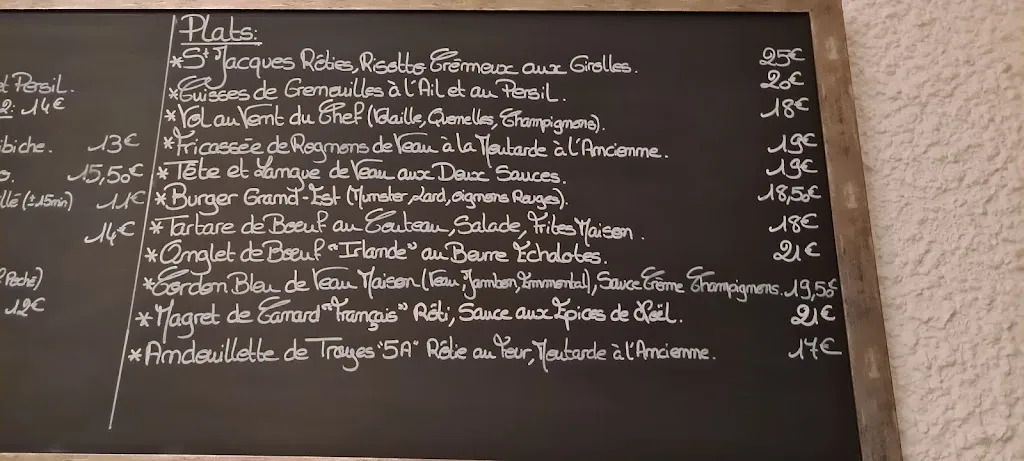 et Persil.
2: 14€
ibiche. 13€
15,50€
llé (±15min) 11€
14€
Pêche)
12€
Plats:
*St Jacques Rôties, Risotto Crémeux aux Girolles. 25€
*Cuisses de Grenouilles à l'Ail et au Persil. 20€
*Vol au Vent du Chef (Volaille, Quenelles, Champignons). 18€
*Fricassée de Rognons de Veau à la Moutarde à l'Ancienne. 19€
*Tête et Langue de Veau aux Deux Sauces. 19€
*Burger Grand-Est (Munster, Lard, oignons Rouges). 18,50€
*Tartare de Boeuf au Couteau, Salade, Frites Maison. 18€
*Onglet de Boeuf "Irlande" au Beurre Echalotes. 21€
*Cordon Bleu de Veau Maison (Veau, Jambon, Emmental), Sauce Crème Champignons. 19,50€
*Magret de Canard "Français" Rôti, Sauce aux Epices de Noël. 21€
*Andouillette de Troyes "5A" Rôtie au Four, Moutarde à l'Ancienne. 17€